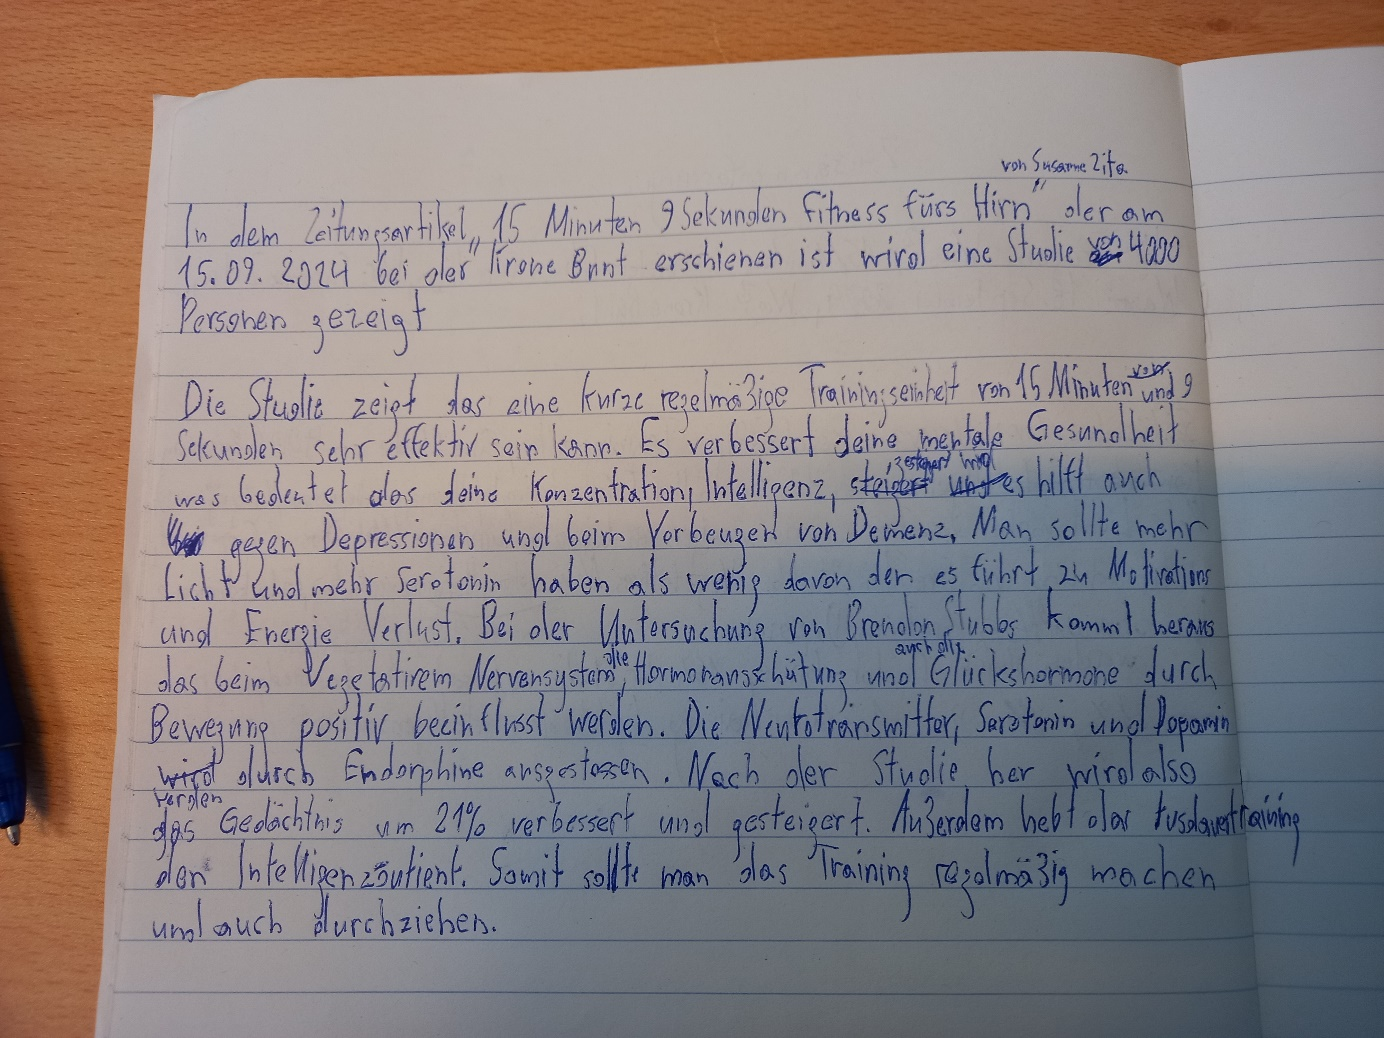 von Susanne Zita
In dem Zeitungsartikel „15 Minuten 9 Sekunden Fitness fürs Hirn" der am
15.09. 2024 bei der Krone Bunt erschienen ist wird eine Studie von 4000
Personen gezeigt
Die Studie zeigt das eine kurze regelmäßige Trainingseinheit von 15 Minuten und 9
Sekunden sehr effektiv sein kann. Es verbessert deine mentale Gesundheit
gesteigert wird
was bedeutet das deine Konzentration, Intelligenz, steigert und es hilft auch
gegen Depressionen und beim Vorbeugen von Demenz. Man sollte mehr
Licht und mehr Serotonin haben als wenig davon den es führt zu Motivations
und Energie Verlust. Bei der Untersuchung von Brendon Stubbs kommt heraus
die auch die
das beim Vegetativem Nervensystem, Hormonausschütung und Glückshormone durch
Bewegung positiv beeinflusst werden. Die Neutotransmitter, Serotonin und Dopamin
wird durch Endorphine ausgestossen. Nach der Studie her wird also
werden
das Gedächtnis um 21% verbessert und gesteigert. Außerdem hebt das training
den Intelligenzqutient. Somit sollte man das Training regelmäßig machen
und auch durchziehen.